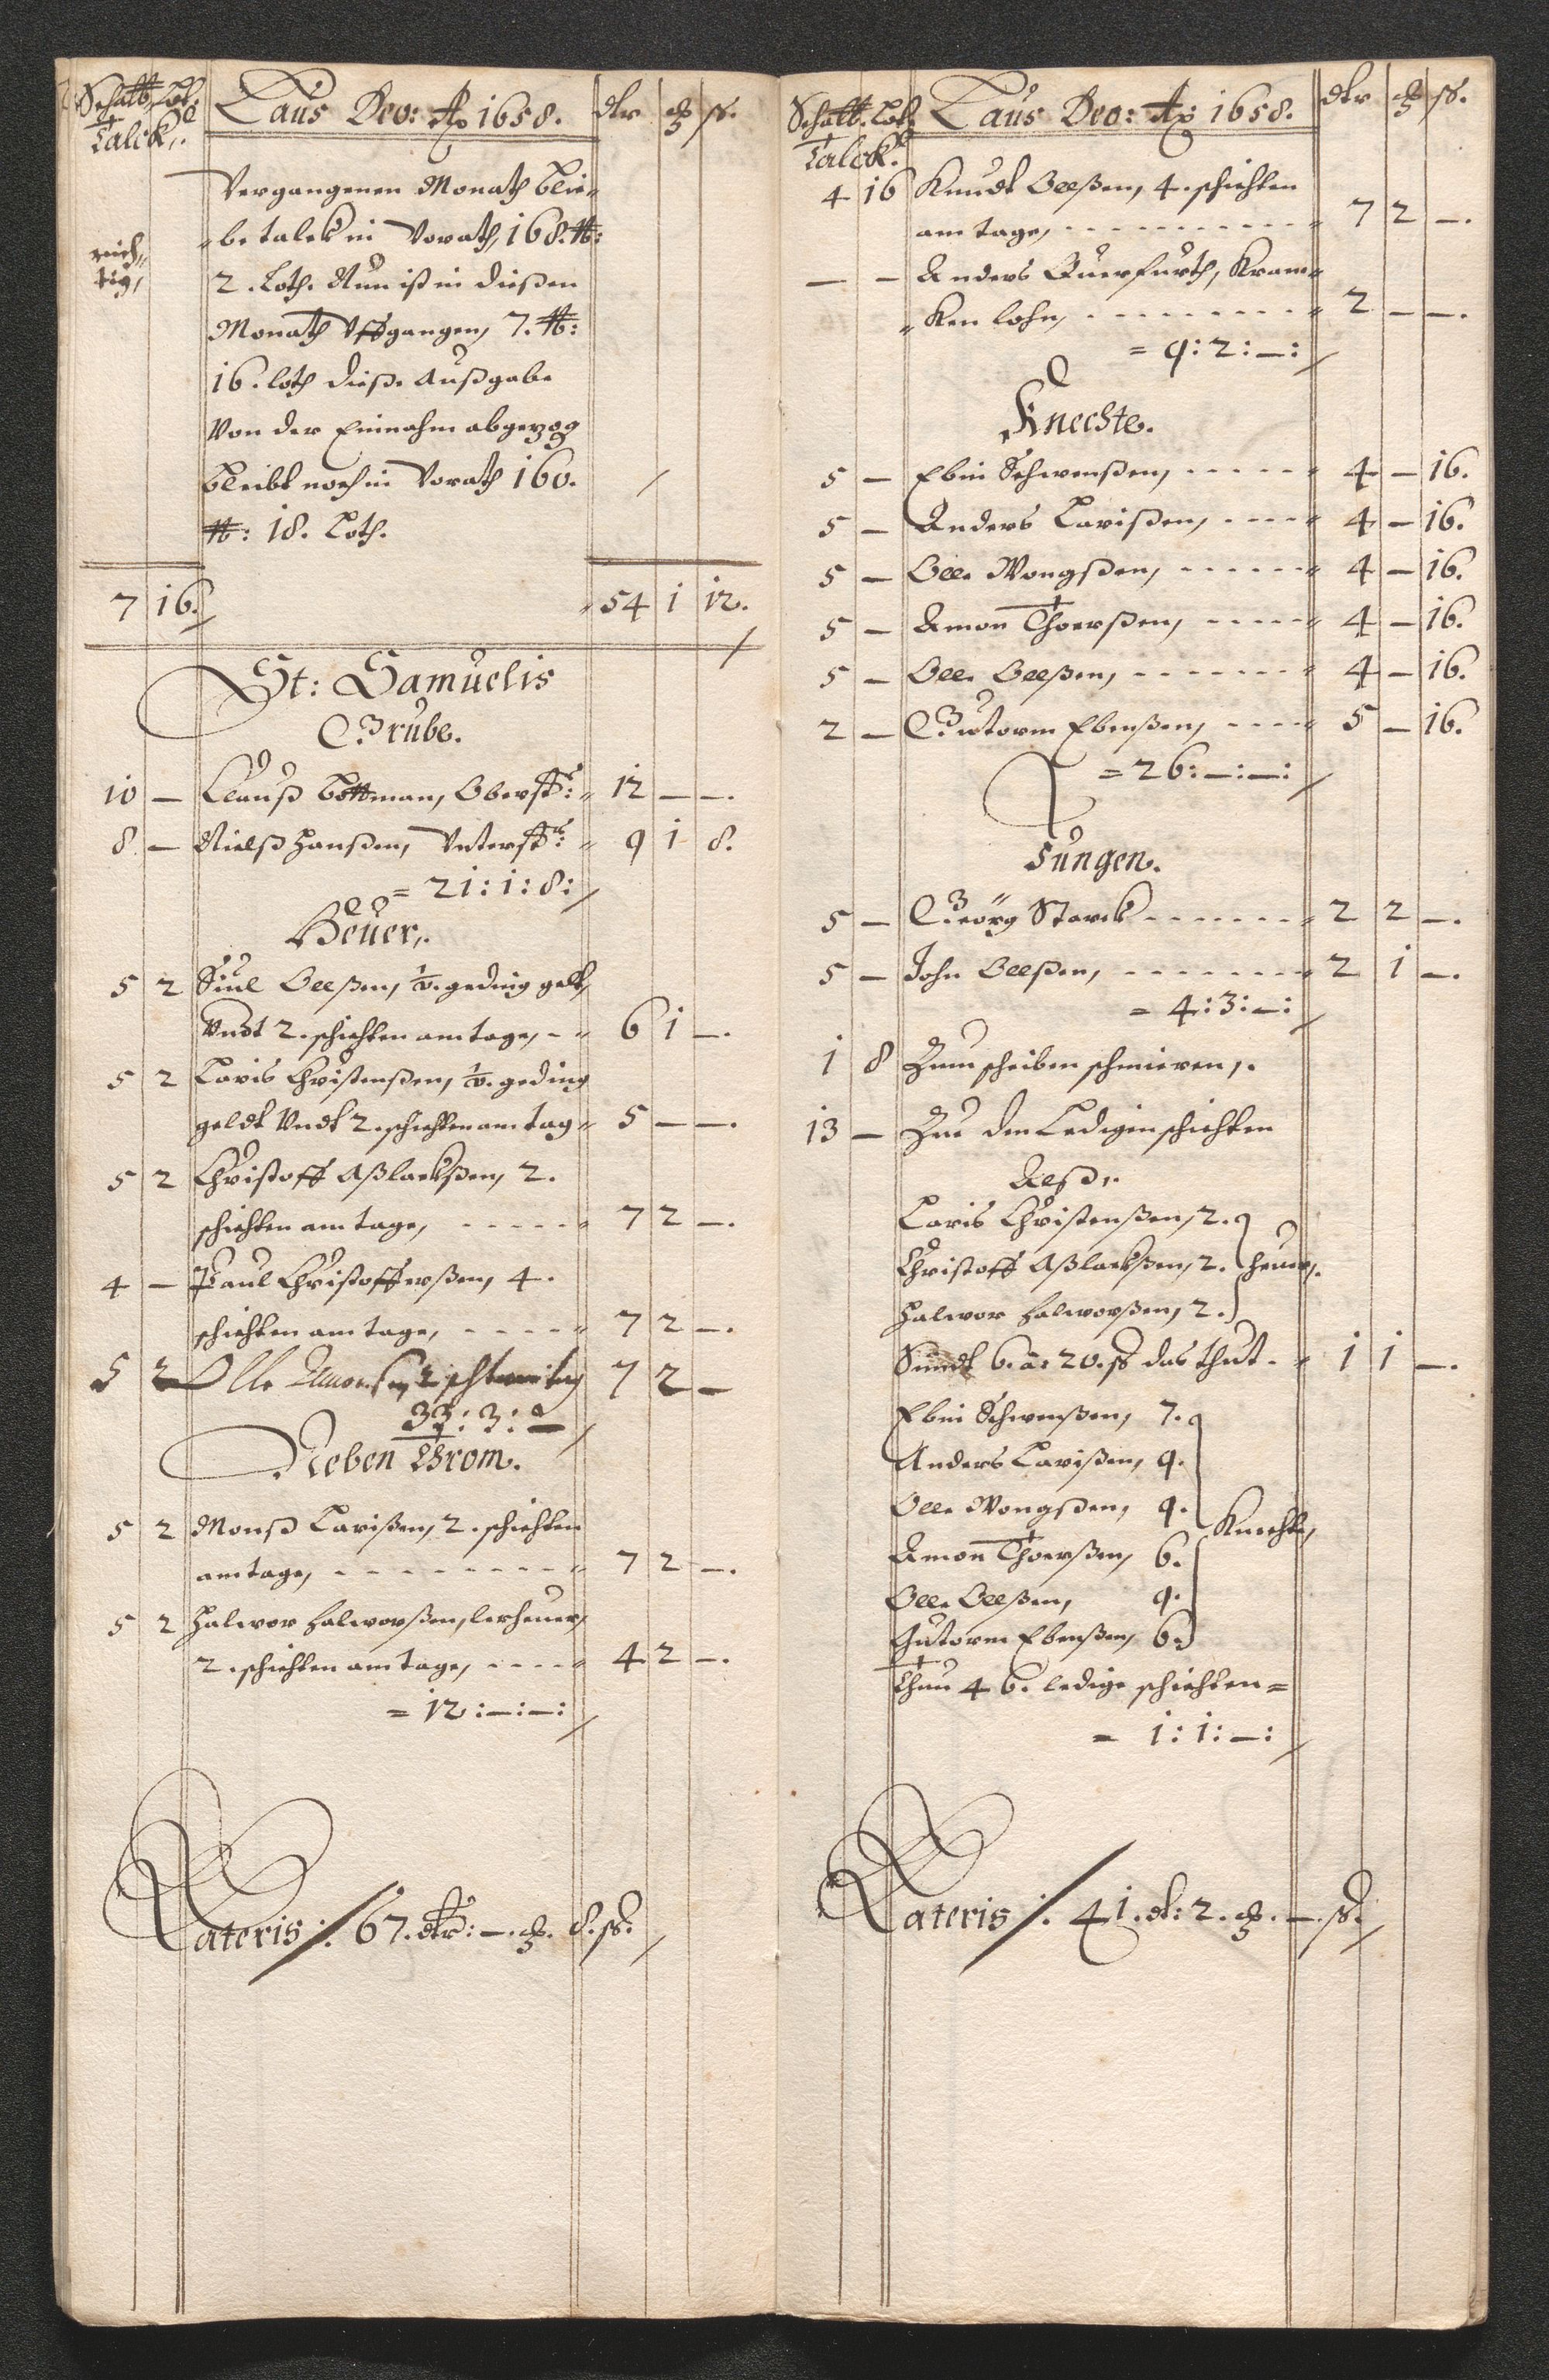 Schatt Lot Laus Deo: Ao 1658. dlr ß.
Talck,.
Vergangenen Monath blie=
=be talck in Vorath, 168. ℔:
rich=
tig,
2. Loth. Nun ist in dießen
Monath Uffgangen, 7. ℔:
16. loth dieße Außgabe
Von der Einnahm abgezog
bleibt noch in Vorath 160.
℔: 18. Loth.
7 16. 54 1 12.
St: Samuelis
Grube.
10 — Clauß Bottman, Oberst: 12 — —.
8 — Nielß Hanßen, Unterst: 9 1 8.
= 21: 1: 8:
Heuer,.
5 2 Siul Olleßen, geding gelt,
Undt 2. schichten am tage, 6 1 —.
5 2 Laris Christenßen, geding
geldt Undt 2. schichten am tag 5 — —.
5 2 Christoff Aßlackßen, 2.
schichten am tage, 7 2 —.
4 — Paul Christofferßen, 4.
schichten am tage, 7 2 —.
5 2 Olle 2 7 2 —
33: 3: —
Neben Throm.
5 2 Monß Larißen, 2. schichten
am tage, 7 2 —.
5 2 Halwor Halworßen, lerheuer,
2. schichten am tage, 4 2 —.
= 12: —: —:
Lateris: 67. dlr: —. 8. ß.
Schatt. Lot. Laus Deo: Ao: 1658. dlr ß.
Talck.
4 16 Knudt Olleßen, 4. schichten
am tage, 7 2 —.
— — Anders Querfurth, Kram=
=Ken lohn, 2 — —.
= 9: 2: —:
Knechte.
5 — Ebin Schwenßen, 4 — 16.
5 — Anders Larißen, 4 — 16.
5 — Olle Mongßen, 4 — 16.
5 — Amon Thoerßen, 4 — 16.
5 — Olle Olleßen, 4 — 16.
2 — Gutorm Ebenßen, 5 — 16.
= 26: —: —:
Jungen.
5 — Georg Starck 2 2 —.
5 — John Olleßen, 2 1 —.
= 4: 3: —:
1 8 Zum scheiben schmieren,.
13 — Zue den Ledigen schichten
Alß,.
Laris Christenßen, 2.
Christoff Aßlackßen, 2. heuer,.
Halwor Halworßen, 2.
Sundt 6. a: 20. ß das thut 1 1 —.
Ebin Schwenßen, 7.
Anders Larißen, 9.
Olle Mongßen, 9.
Knechte,
Amon Thoerßen, 6.
Olle Olleßen, 9.
Gutorm Ebenßen, 6.
Thun 46. ledige schichten=
= 1: 1: —:
Lateris: 41. dl: 2. —. ß.